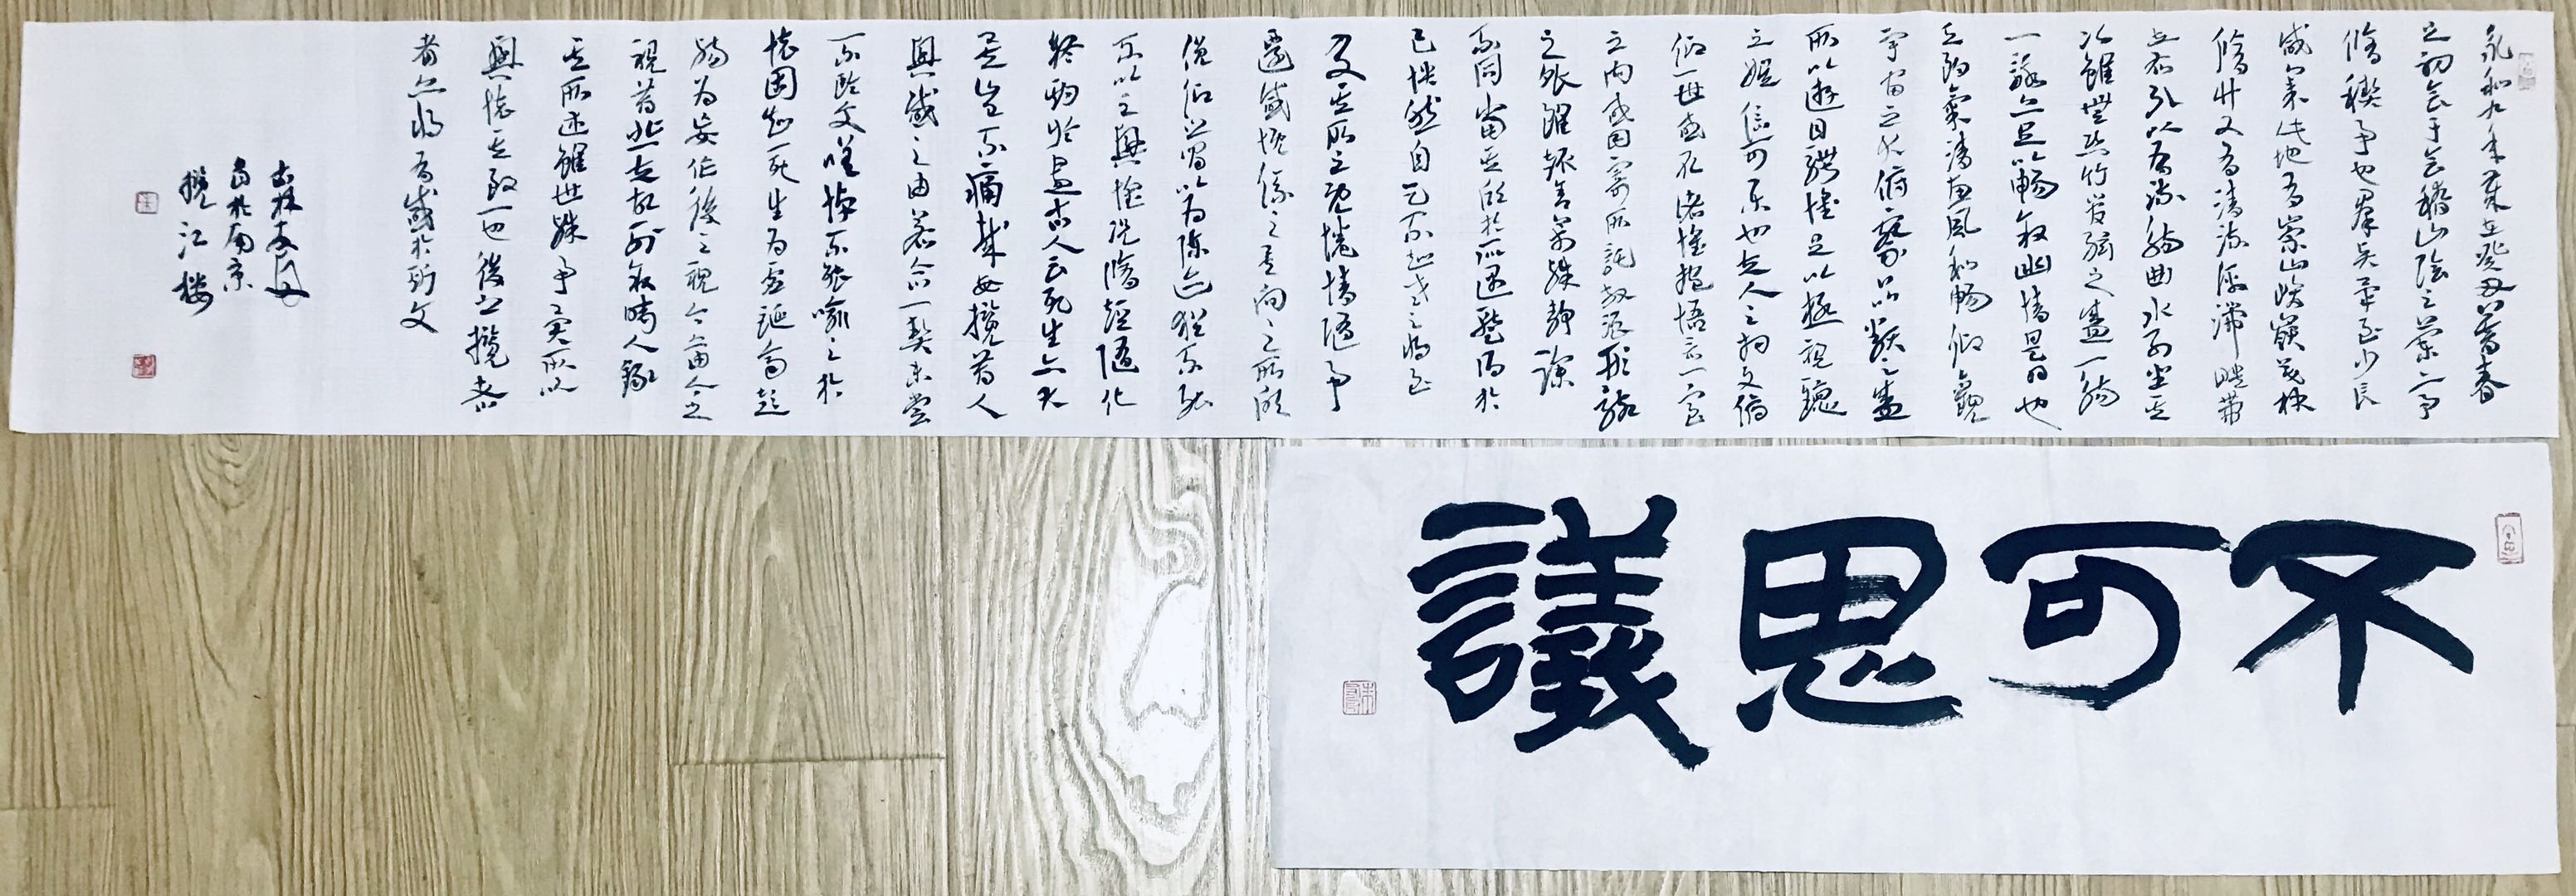 永和九年歲在癸丑暮春
之初會于會稽山陰之蘭亭
脩禊事也羣賢畢至少長
咸集此地有崇山峻嶺茂林
脩竹又有清流激湍暎帶
左右引以為流觴曲水列坐其
次雖無絲竹管弦之盛一觴
一詠亦足以暢叙幽情是日也
天朗氣清惠風和暢仰觀
宇宙之大俯察品類之盛
所以遊目騁懷足以極視聽
之娛信可樂也夫人之相與俯
仰一世或取諸懷抱悟言一室
之內或因寄所託放浪形骸
之外雖趣舍萬殊靜躁
不同當其欣於所遇暫得於
己快然自足不知老之將至
及其所之既惓情隨事
遷感慨係之矣向之所欣
俛仰之間以為陳迹猶不能
不以之興懷況脩短隨化
終期於盡古人云死生亦大
矣豈不痛哉每攬昔人
興感之由若合一契未嘗
不臨文嗟悼不能喻之於
懷固知一死生為虛誕齊彭
殤為妄作後之視今亦由今之
視昔悲夫故列叙時人錄
其所述雖世殊事異所以
興懷其致一也後之攬
者亦將有感於斯文
書於南京
攬江樓
不可思議